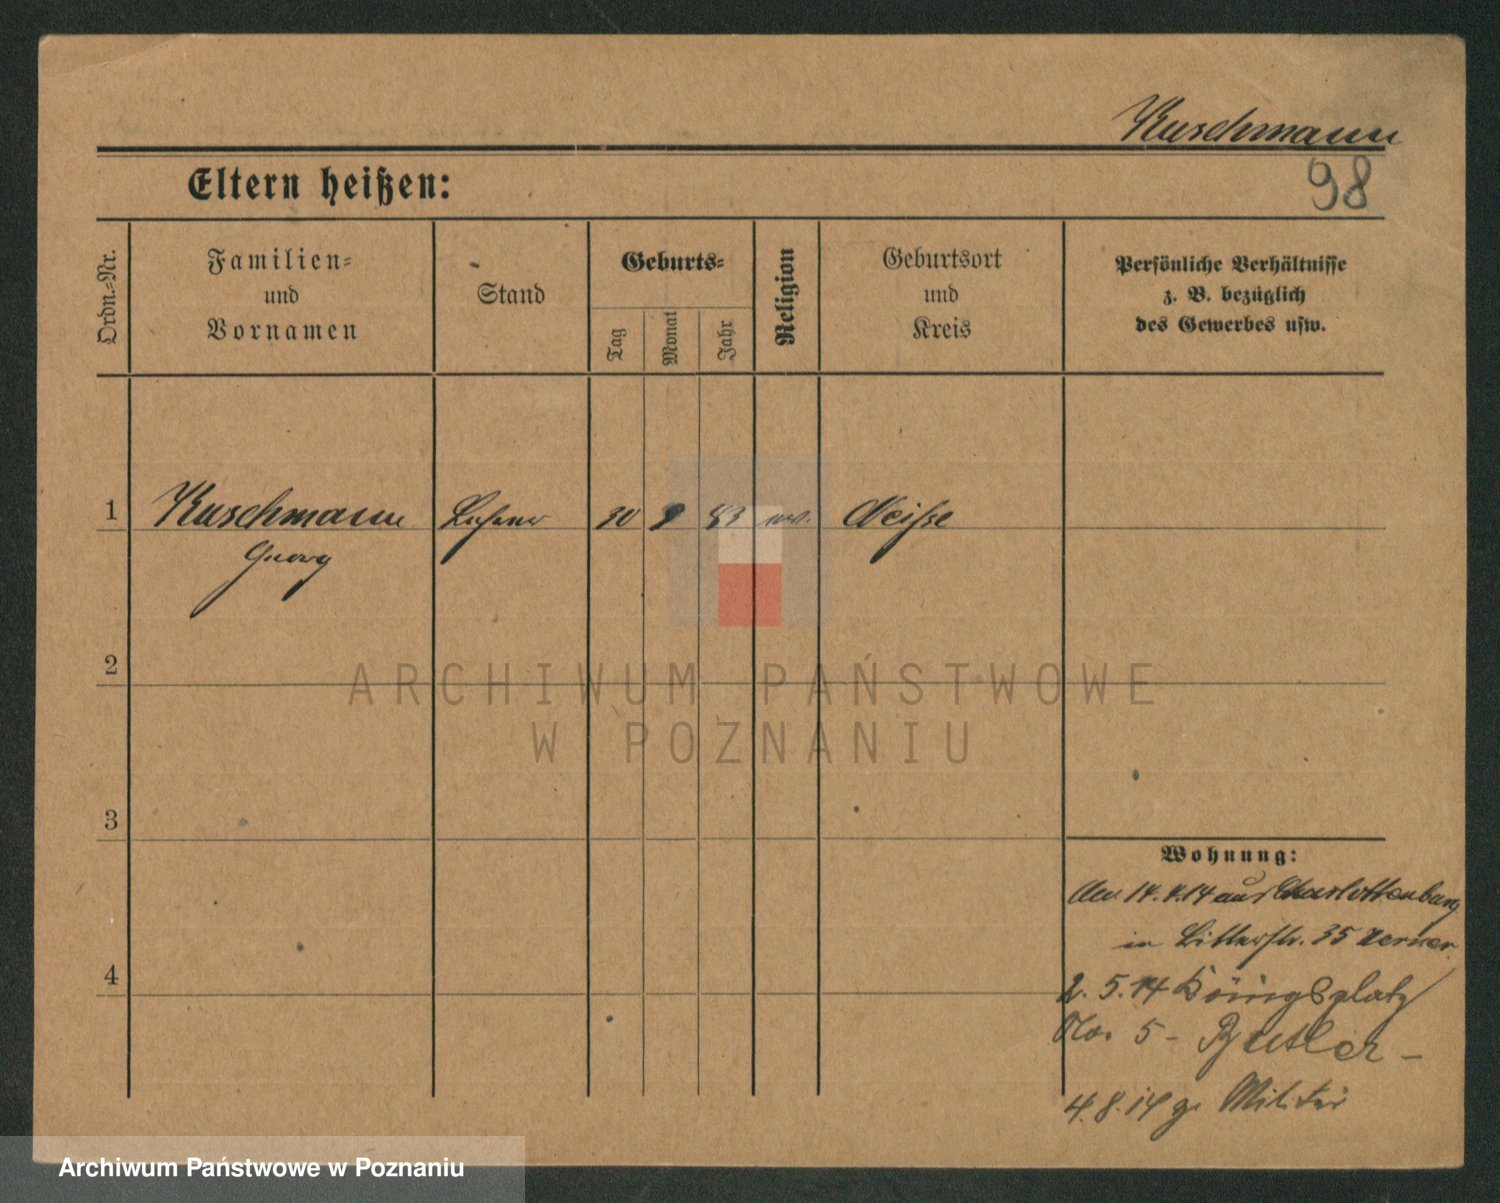 Kuschmann
98
Eltern heißen:
Ordn.-Nr.
Familien-
und
Vornamen
Stand
Geburts-
Tag
Monat
Jahr
Religion
Geburtsort
und
Kreis
Persönliche Verhältnisse
z. B. bezüglich
des Gewerbes usw.
1 Kuschmann 30 8 83 Neisse
Georg
2
ARCHIWUM PAŃSTWOWE
W POZNANIU
3
Wohnung:
14.4.14 aus Charlottenburg
in 35
4
2. 5. 14 Königsplatz
No. 5 - Butler -
4.8.14 z. Militär
Archiwum Państwowe w Poznaniu